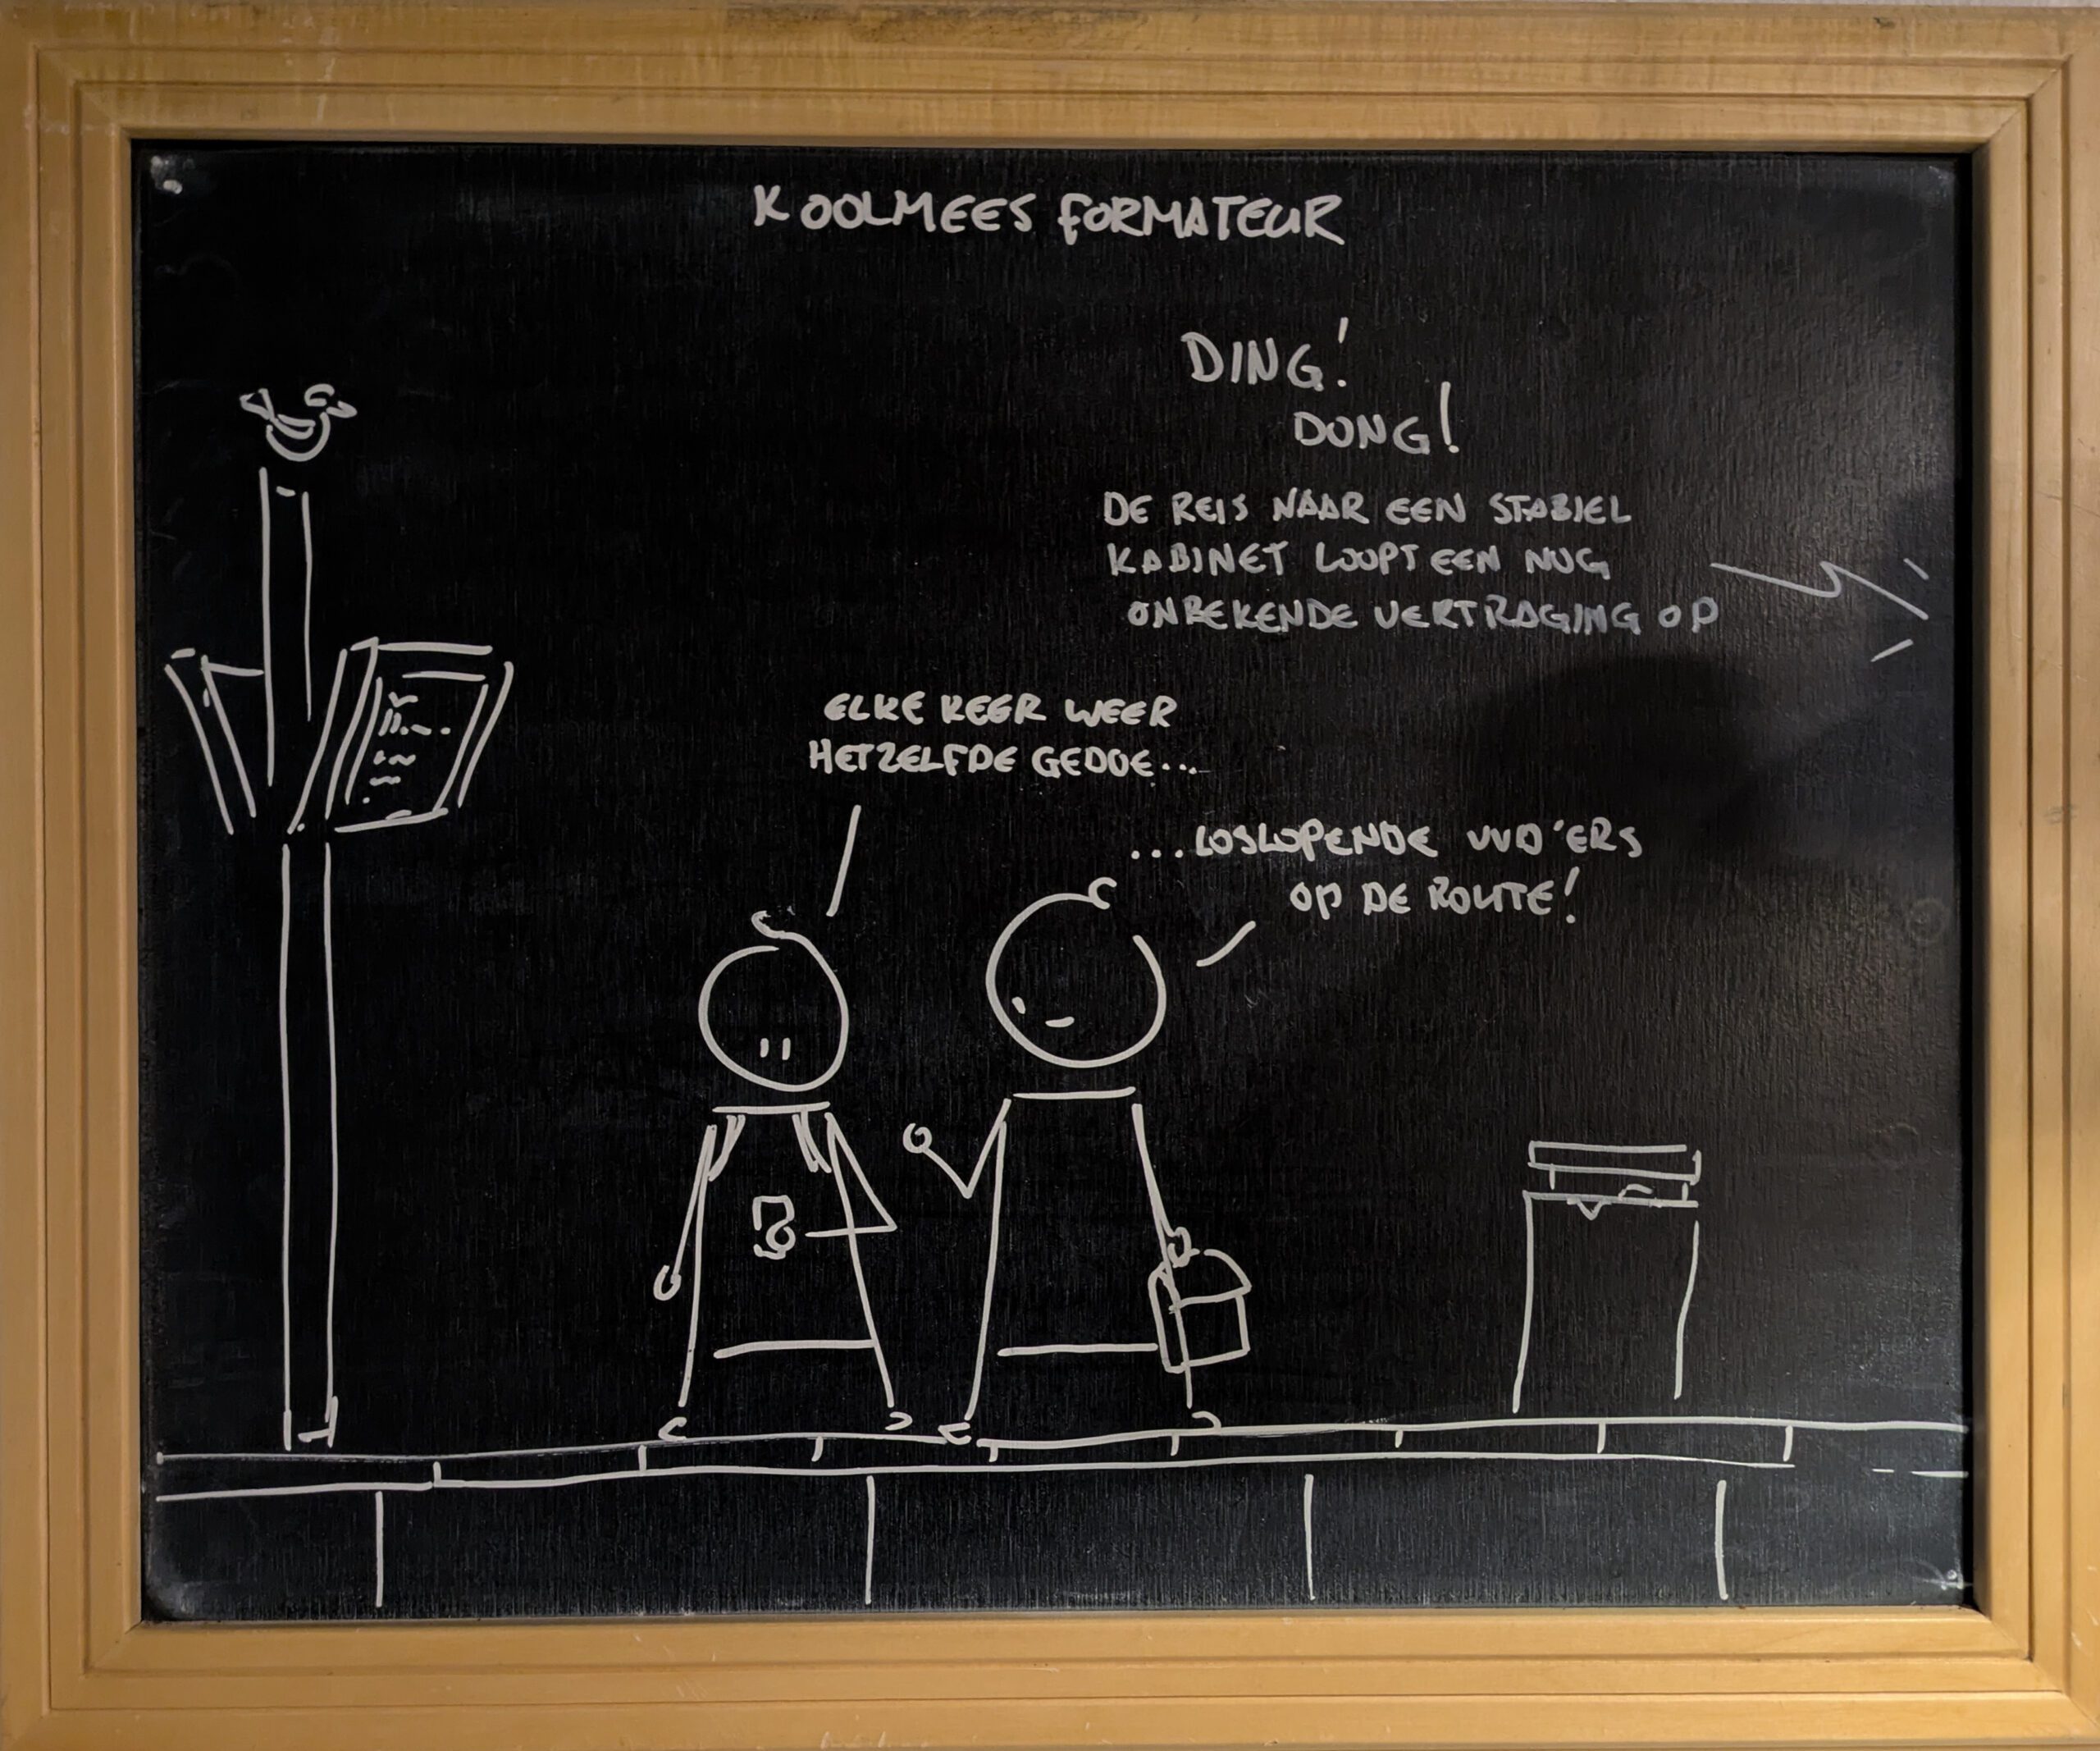 KOOLMEES FORMATEUR
DING!
DONG!
DE REIS NAAR EEN STABIEL
KABINET LOOPT EEN NOG
ONBEKENDE VERTRAGING OP
ELKE KEER WEER
HETZELFDE GEDOE...
...LOSLOPENDE VVD'ERS
OP DE ROUTE!